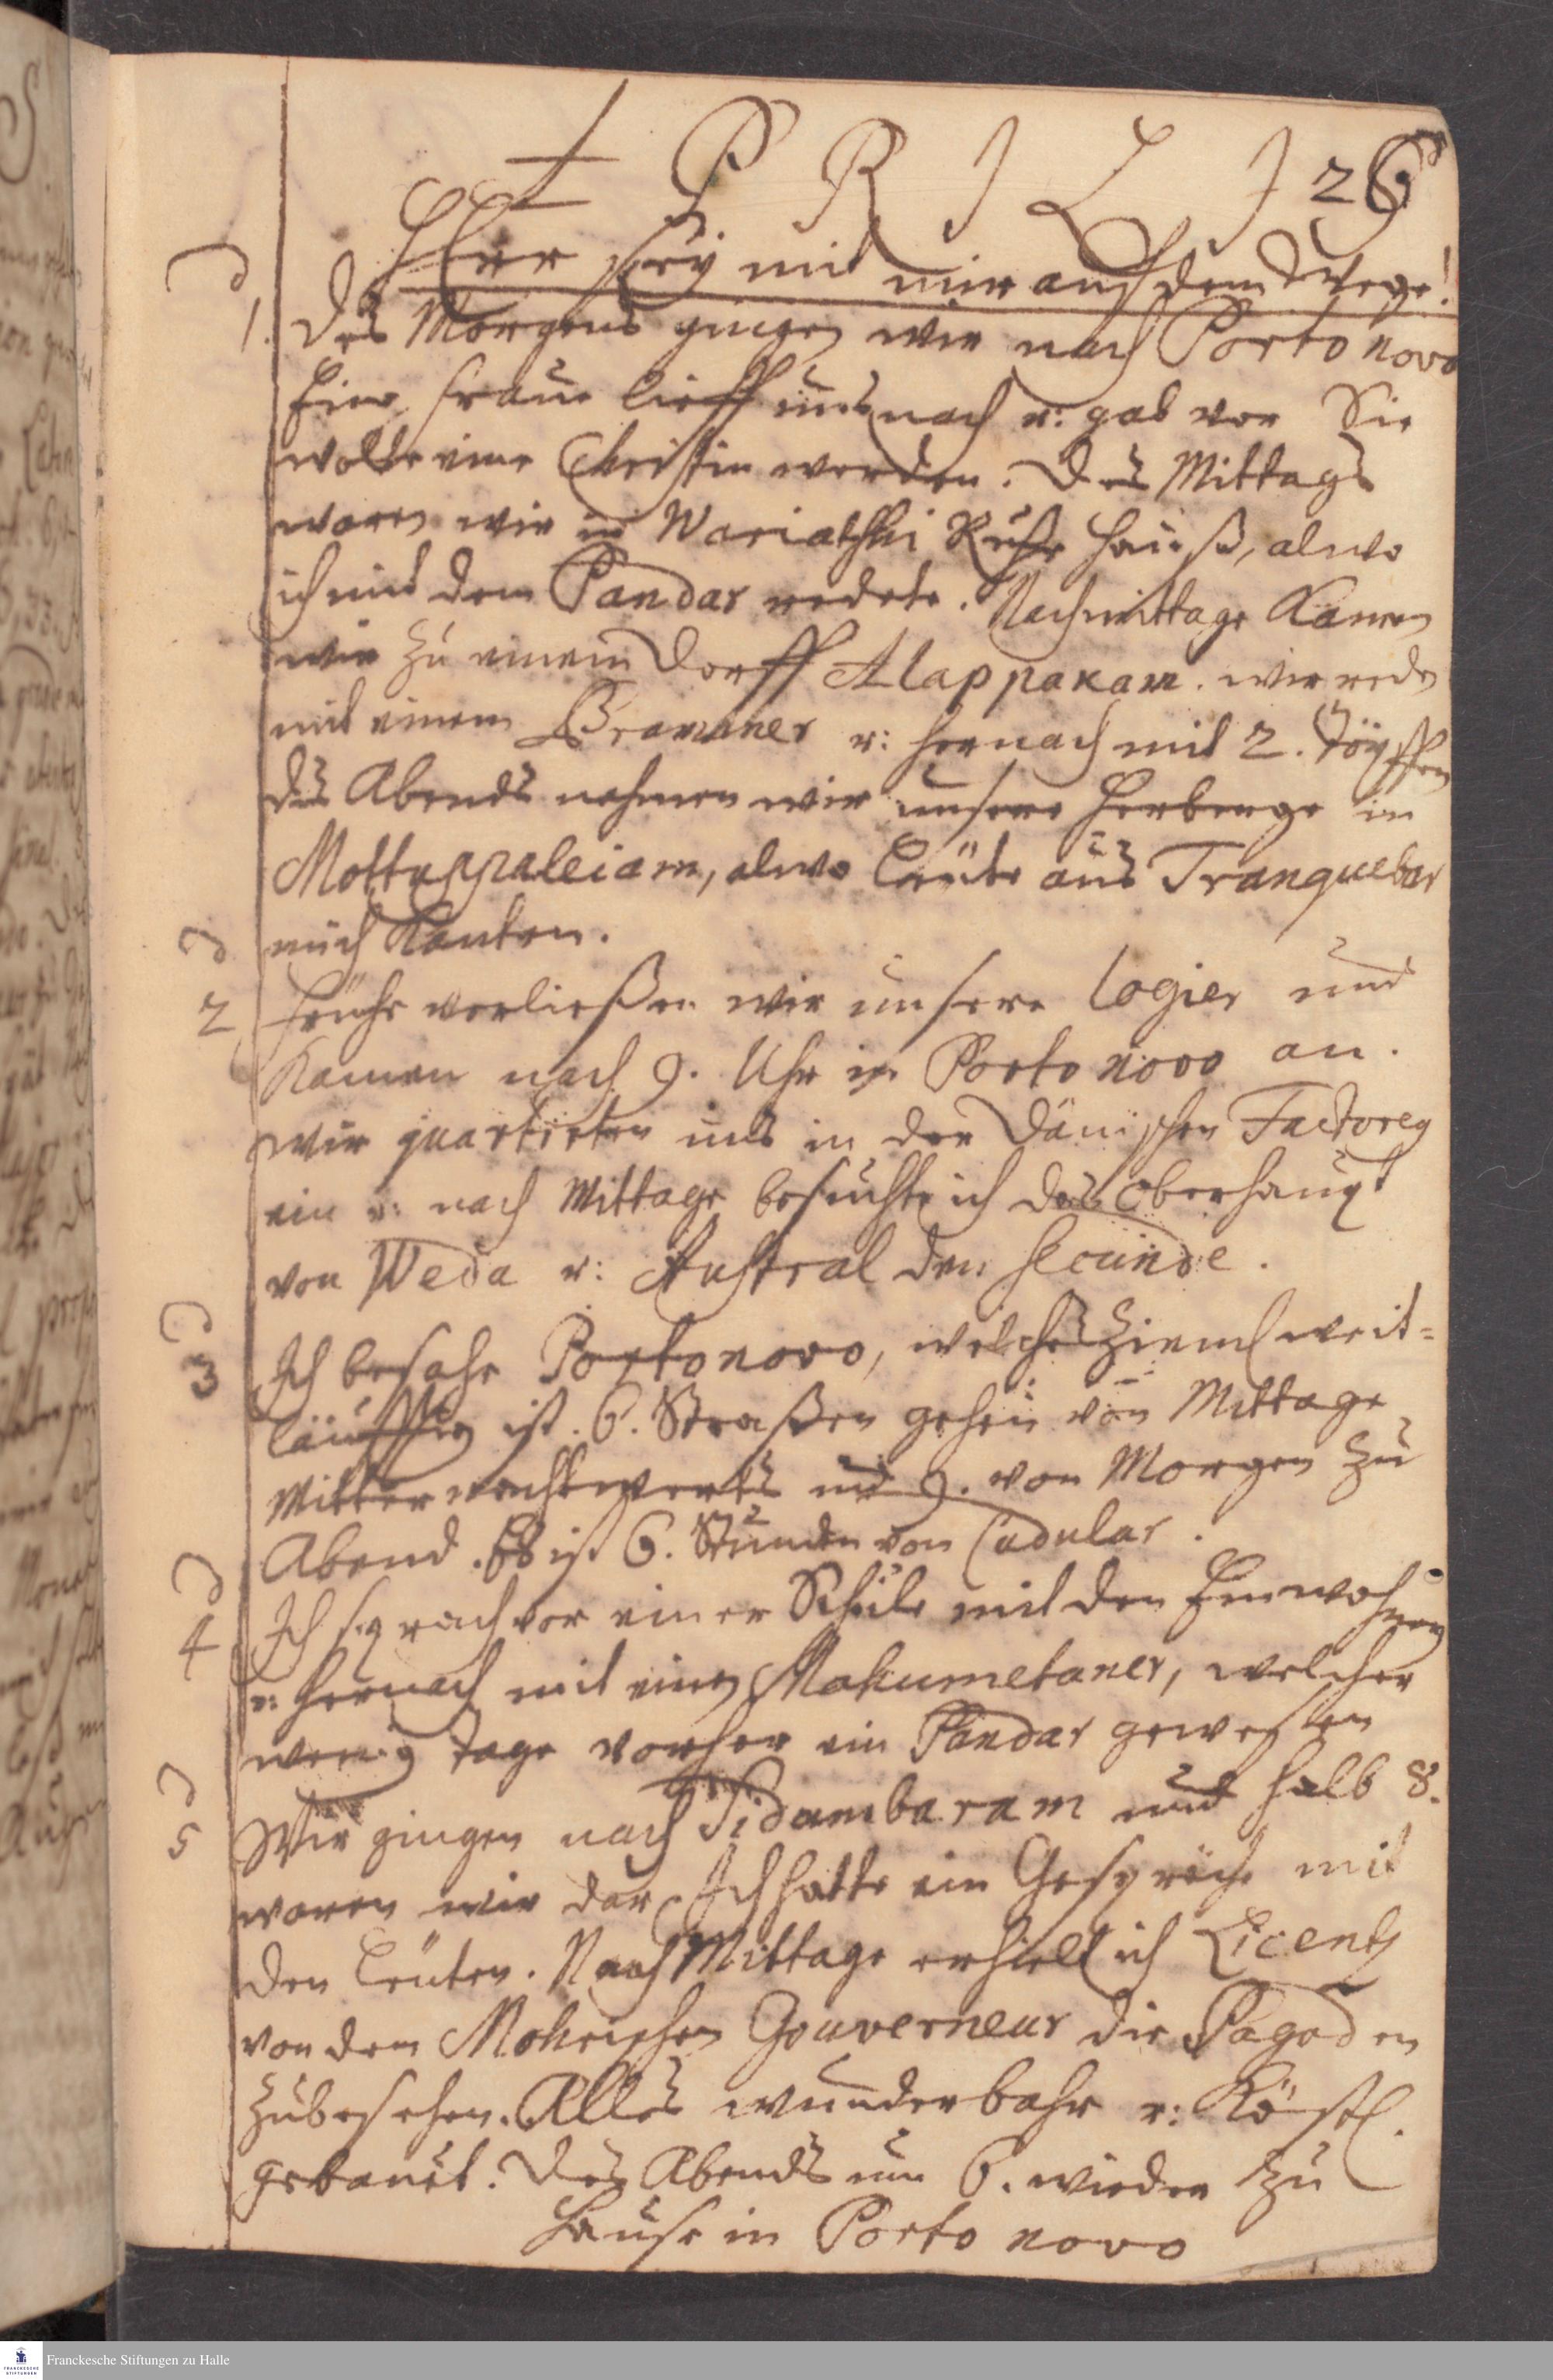 APRILJ 26
HErr sey mit mir auf dem Wege!
1. Des Morgens gingen wir nach Porto novo
Eine fraue lieff uns nach u: gab vor Sie
wolte eine Christin werden. Des Mittags
waren wir in Wariathki Ruhe Hauß, alwo
ich mit dem Pandar redete. Nachmittage Kamen
wir zu einem Dorff Alappakam. wir reden
mit einem Bramaner u: hernach mit 2.
des Abends nahmen wir unsere Herberge in
Mottuppaleiam, alwo Leute aus Tranquebar
mich Kanten.
2 frühe verließen wir unsere Logier und
Kamen nach 9. Uhr in Porto novo an.
wir quartirten uns in der Dänischen Factorey
ein u: nach Mittage besuchte ich das Oberhaupt
von Weda u: Austral den Secunde.
3 Ich besahe Porto novo, welches Zieml weit=
läufftig ist. 6. Straßen gehen von Mittage
Mitternachtwerts und 9. von Morgen zu
Abend. Es ist 6. Stunden von Cudular.
4 Ich sprach vor einer Schule mit den Einwohnern
u: hernach mit einem Mahumetaner, welcher
wenig tage vorher ein Pandar gewesen
5 Wir gingen nach Sidambaram und halb 8.
waren wir dar. Ich hatte ein Gespräche mit
den Leuten. Nach Mittage erhielt ich Licentz
von dem Mohrischen Gouverneur die Pagoden
zubesehen. Alles wunderbahr u: Köstl.
gebauet. Des Abends um 6. wieder zu
Hause in Porto novo
Franckesche Stiftungen zu Halle